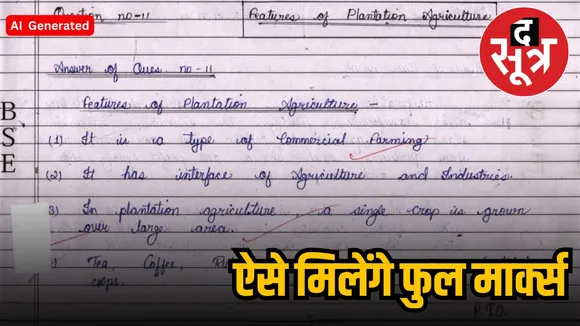 AI Generated
Question no-11
Features of Plantation Agriculture
द सूत्र
Answer of Ques. no-11
Features of Plantation Agriculture :-
BSE
(1) It is a type of Commercial Farming
(2) It has interface of Agriculture and Industries.
3) In plantation agriculture a single crop is grown
over large area.
Tea, Coffee,
crops.
ऐसे मिलेंगे फुल मार्क्स
P.T.O.